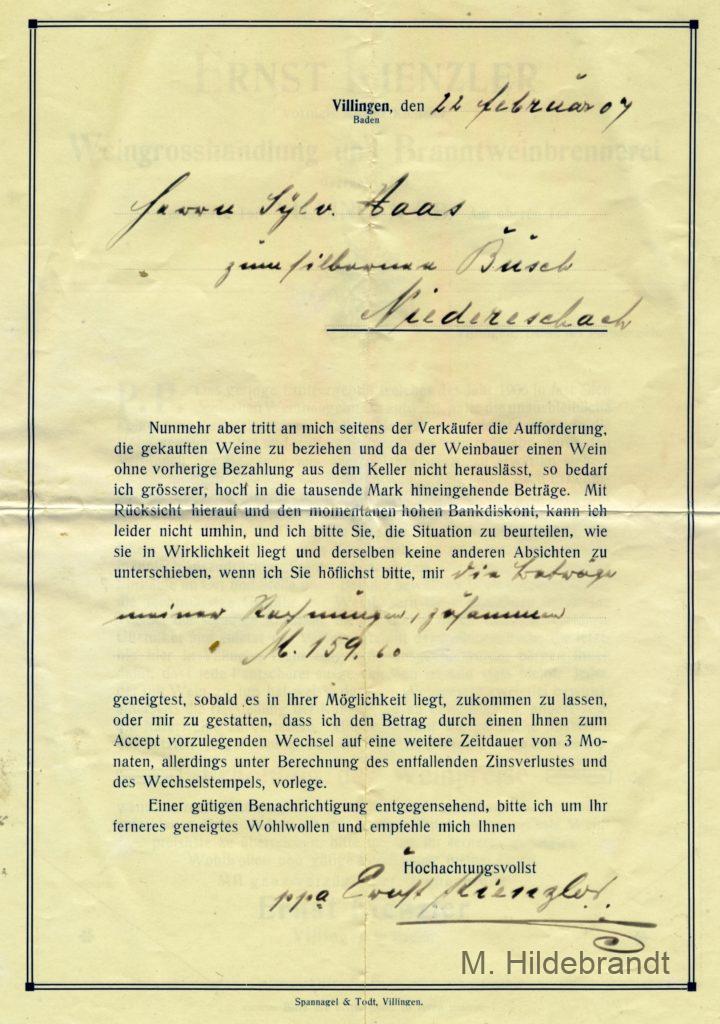 Villingen, den 22 februar 07
Baden
Herrn Sylv. Haas
zum silbernen Busch
Niedereschach
Nunmehr aber tritt an mich seitens der Verkäufer die Aufforderung,
die gekauften Weine zu beziehen und da der Weinbauer einen Wein
ohne vorherige Bezahlung aus dem Keller nicht herauslässt, so bedarf
ich grösserer, hoch in die tausende Mark hineingehende Beträge. Mit
Rücksicht hierauf und den momentanen hohen Bankdiskont, kann ich
leider nicht umhin, und ich bitte Sie, die Situation zu beurteilen, wie
sie in Wirklichkeit liegt und derselben keine anderen Absichten zu
unterschieben, wenn ich Sie höflichst bitte, mir die Beträge
meiner Rechnungen, zusammen
M. 159.60
geneigtest, sobald es in Ihrer Möglichkeit liegt, zukommen zu lassen,
oder mir zu gestatten, dass ich den Betrag durch einen Ihnen zum
Accept vorzulegenden Wechsel auf eine weitere Zeitdauer von 3 Mo-
naten, allerdings unter Berechnung des entfallenden Zinsverlustes und
des Wechselstempels, vorlege.
Einer gütigen Benachrichtigung entgegensehend, bitte ich um Ihr
ferneres geneigtes Wohlwollen und empfehle mich Ihnen
Hochachtungsvollst
ppa Ernst Kienzler
M. Hildebrandt
Spannagel & Todt, Villingen.